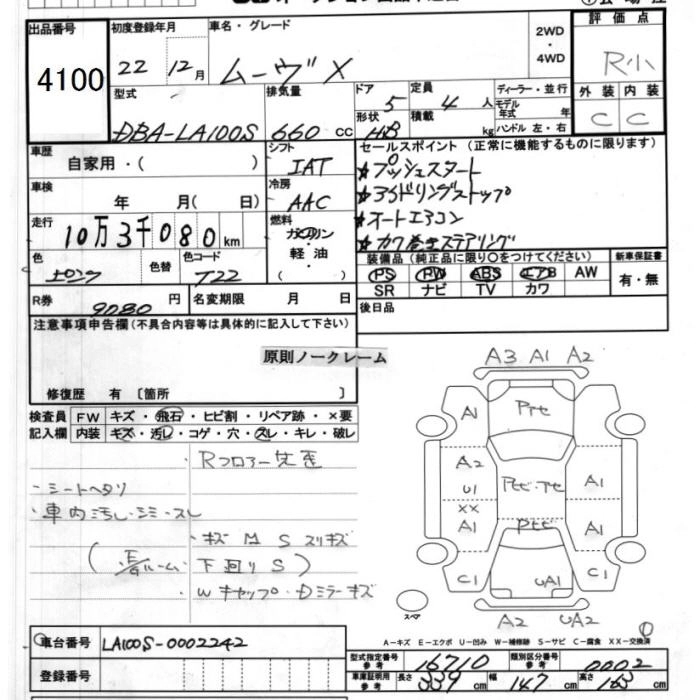 出品番号 初度登録年月 車名・グレード 2WD・4WD 評価点
4100 22年 12月 ムーヴX R小
型式 排気量 ドア 形状 定員 積載 ディーラー・並行 モデル年式 年 ハンドル 左・右 外装 内装
DBA-LA100S 660cc 5 HB 4人 kg C C
車歴 自家用・( ) シフト IAT セールスポイント (正常に機能するものに限ります)
★プッシュスタート
車検 年 月( 日) 冷房 AAC ★アイドリングストップ
走行 10万3千080km 燃料 ガソリン・軽油・( ) ★オートエアコン
★カワ巻きステアリング
色 色替 色コード T22 装備品 (純正品に限り○をつけてください) 新車保証書
PS PW ABS エアB AW 有・無
SR ナビ TV カワ
R券 9080円 名変期限 月 日 後日品
注意事項申告欄(不具合内容等は具体的に記入して下さい)
原則ノークレーム
修復歴 有 [箇所 ]
検査員記入欄 FW キズ・飛石・ヒビ割・リペア跡・×要
内装 キズ・汚レ・コゲ・穴・スレ・キレ・破レ
・Rフロアー
・シートヘタリ
・車内汚レ・シミ・スレ
・キズ M S スリキズ
(E/Gルーム・下廻り S)
・Wキャップ・Dミラーキズ
A3 A1 A2
A1
A2 A1
U1
XX
A1 A1
C1 UA1 C1
スペア
A2 UA2
A-キズ E-エクボ U-凹み W-補修跡 S-サビ C-腐食 XX-交換済
車台番号 LA100S-0002242
登録番号
型式指定番号 参考 16710 類別区分番号 参考 0002
車庫証明用 参考 長さ 339cm 幅 147cm 高さ 163cm